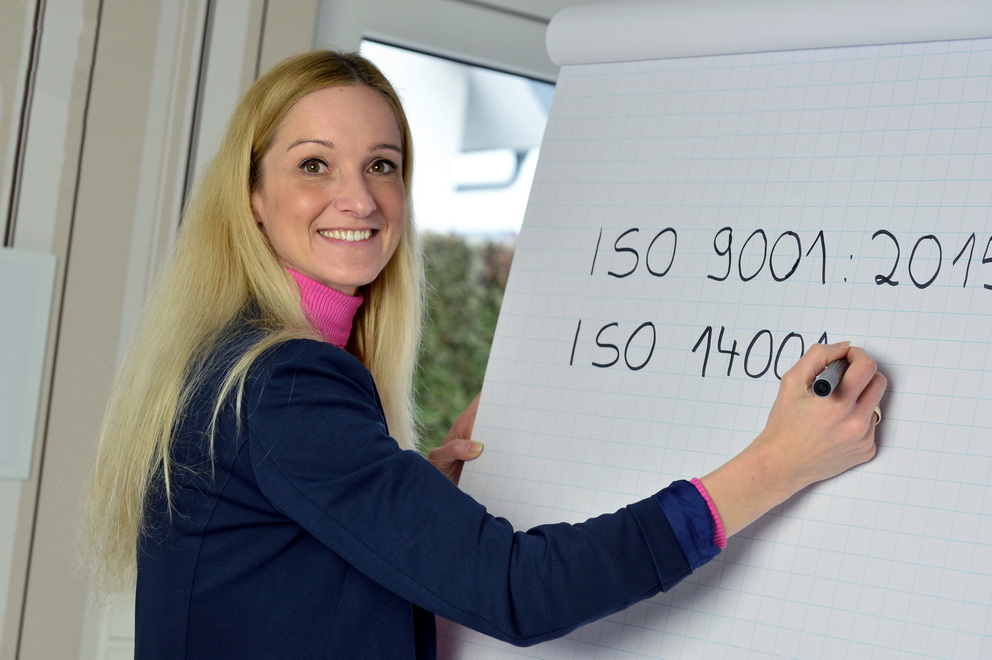 ISO 9001:2015
ISO 14001